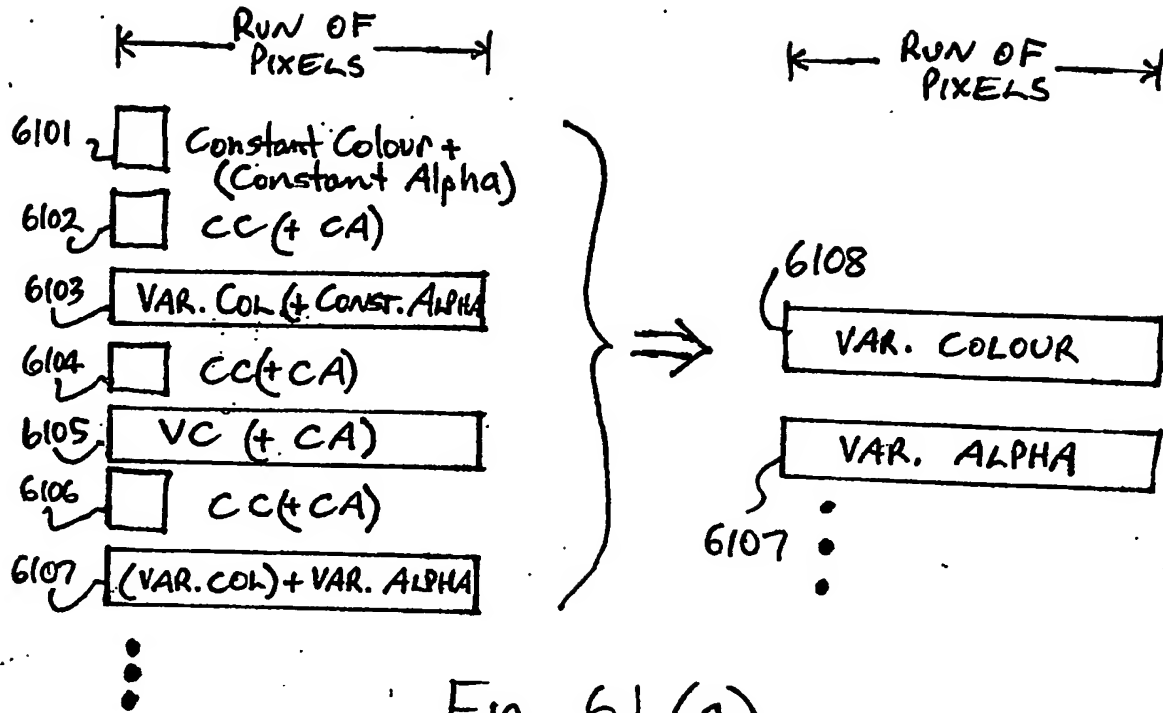 RUN OF
PIXELS
6101 Constant Colour +
(Constant Alpha)
6102 CC (+ CA)
6103 VAR. COL (+ CONST. ALPHA
6104 CC (+ CA)
6105 VC (+ CA)
6106 CC (+ CA)
6107 (VAR. COL) + VAR. ALPHA
RUN OF
PIXELS
6108
VAR. COLOUR
VAR. ALPHA
6107
Fig. 61 (a)